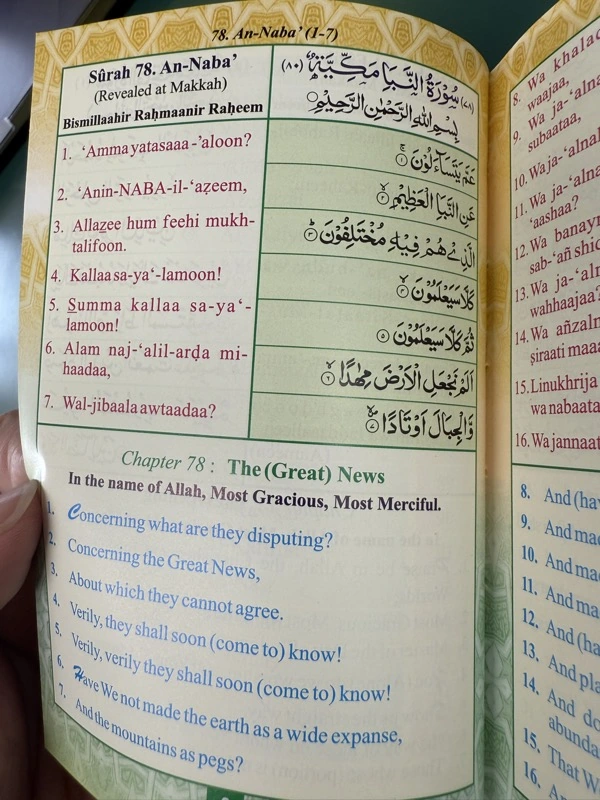 78. An-Naba' (1-7)
Sûrah 78. An-Naba'
(Revealed at Makkah)
Bismillaahir Raḥmaanir Raḥeem
(٧٨) سُوْرَةُ النَّبَاِ مَكِّيَّةٌ (٨٠)
بِسْمِ اللهِ الرَّحْمٰنِ الرَّحِيْمِ
1. ‘Amma yatasaaa-’aloon?
عَمَّ يَتَسَآءَلُوْنَ ۚ ١
2. ‘Anin-NABA-il-‘aẓeem,
عَنِ النَّبَاِ الْعَظِيْمِ ۙ ٢
3. Allaẕee hum feehi mukh-
talifoon.
الَّذِيْ هُمْ فِيْهِ مُخْتَلِفُوْنَ ؕ ٣
4. Kallaa sa-ya‘-lamoon!
كَلَّا سَيَعْلَمُوْنَ ۙ ٤
5. S̲umma kallaa sa-ya‘-
lamoon!
ثُمَّ كَلَّا سَيَعْلَمُوْنَ ٥
6. Alam naj-‘alil-arḍa mi-
haadaa,
اَلَمْ نَجْعَلِ الْاَرْضَ مِهٰدًا ۙ ٦
7. Wal-jibaala awtaadaa?
وَّالْجِبَالَ اَوْتَادًا ۙ ٧
Chapter 78 : The (Great) News
In the name of Allah, Most Gracious, Most Merciful.
1. Concerning what are they disputing?
2. Concerning the Great News,
3. About which they cannot agree.
4. Verily, they shall soon (come to) know!
5. Verily, verily they shall soon (come to) know!
6. Have We not made the earth as a wide expanse,
7. And the mountains as pegs?
8. Wa khalac
waajaa,
9. Wa ja-‘alna
subaataa,
10. Wa ja-‘alnal
11. Wa ja-‘alna
‘aashaa?
12. Wa banayn
sab-‘añ shic
13. Wa ja-‘aln
wahhaajaa?
14. Wa añzaln
ṣiraati maaa
15. Linukhrija
wa nabaata
16. Wa jannaat
8. And (hav
9. And mad
10. And mad
11. And mad
12. And (ha
13. And pla
14. And do
abunda
15. That W
16. An